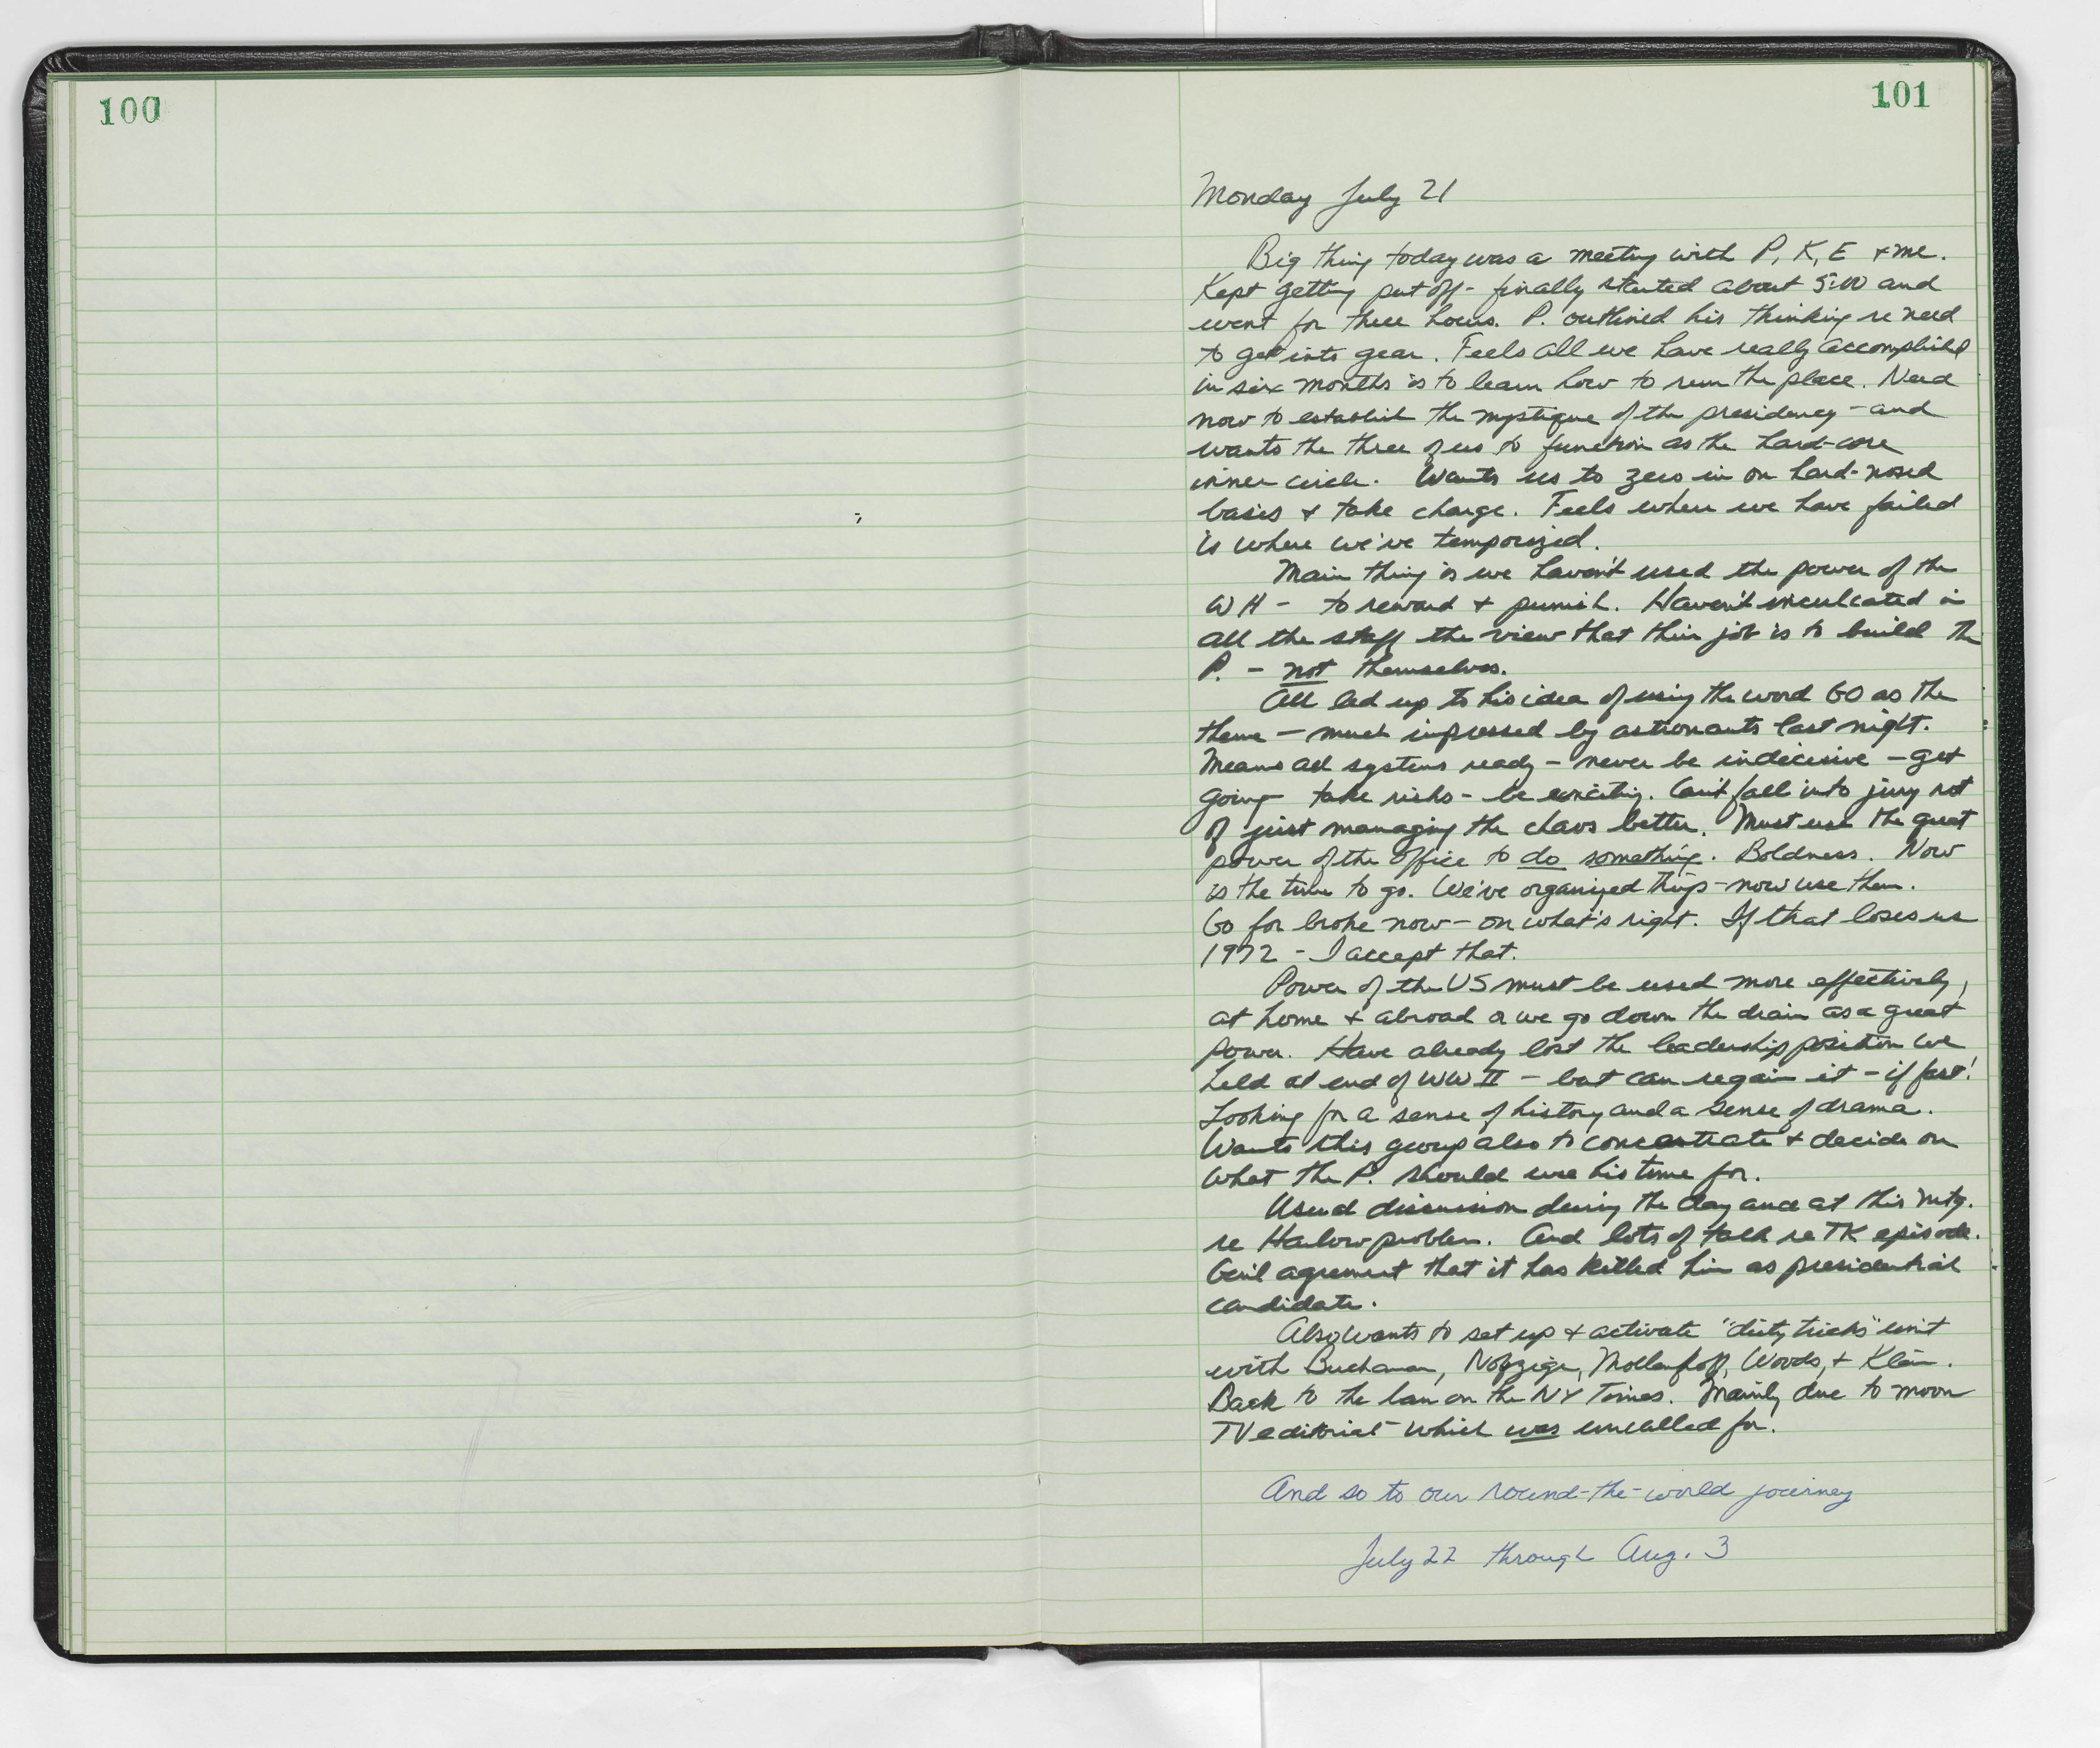 100
101
Monday July 21
Big thing today was a meeting with P, K, E + me.
Kept getting put off - finally started about 5:00 and
went for three hours. P. outlined his thinking re need
to get into gear. Feels all we have really accomplished
in six months is to learn how to run the place. Need
now to establish the mystique of the presidency - and
wants the three of us to function as the hard-core
inner circle. Wants us to zero in on hard-nosed
basis + take charge. Feels where we have failed
is where we've temporized.
Main thing is we haven't used the power of the
WH - to reward + punish. Haven't inculcated in
all the staff the view that their job is to build the
P. - not themselves.
All led up to his idea of using the word GO as the
theme - much impressed by astronauts last night.
Means all systems ready - never be indecisive - get
going - take risks - be exciting. Can't fall into jury rot
of just managing the chaos better. Must use the great
power of the office to do something. Boldness. Now
is the time to go. We've organized things - now use them.
Go for broke now - on what's right. If that loses us
1972 - I accept that.
Power of the US must be used more effectively,
at home + abroad or we go down the drain as a great
power. Have already lost the leadership position we
held at end of WW II - but can regain it - if fast!
Looking for a sense of history and a sense of drama.
Wants this group also to concentrate + decide on
what the P. should use his time for.
Usual discussion during the day and at this mtg.
re Harlow problem. And lots of talk re TK episode.
Gen'l agreement that it has killed him as presidential
candidate.
Also wants to set up + activate "dirty tricks" unit
with Buchanan, Nofziger, Mollenhoff, Woods, + Klein.
Back to the ban on the NY Times. Mainly due to moon
TV editorial - which was uncalled for.
And so to our round-the-world journey
July 22 through Aug. 3